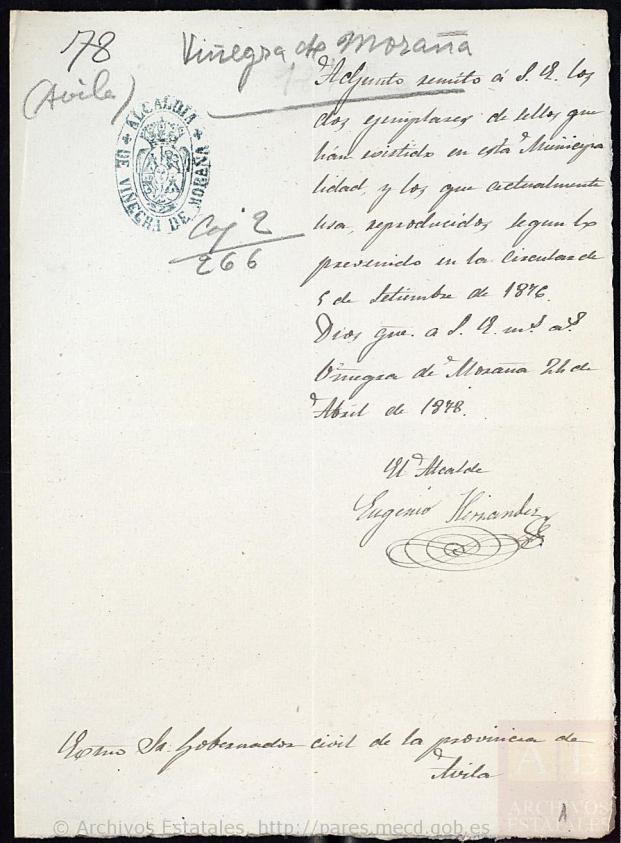 78
Viñegra de Moraña
(Avila)
ALCALDIA DE VIÑEGRA DE MORAÑA
Caj 2
266
Adjunto remito á S. E. los
dos ejemplares de sellos que
han existido en esta Municipa
lidad, y los que actualmente
usa, reproducidos segun lo
prevenido en la Circular de
5 de Setiembre de 1876.
Dios gue. a S. E. ms. as.
Viñegra de Moraña 24 de
Abril de 1878.
El Alcalde
Eugenio Hernandez
Exmo Sr. Gobernador civil de la provincia de
Avila
© Archivos Estatales, http://pares.mecd.gob.es
ARCHIVOS
ESTATALES